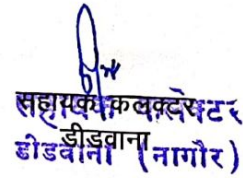 सहायक कलक्टर
डीडवाना
डीडवाना (नागौर)